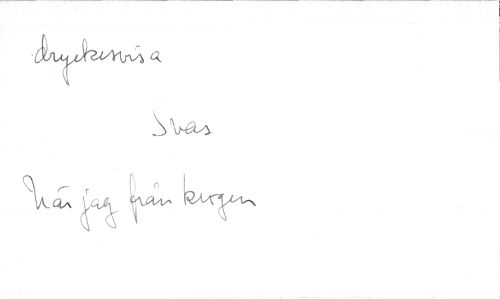 dryckesvisa
Svas
När jag från krogen